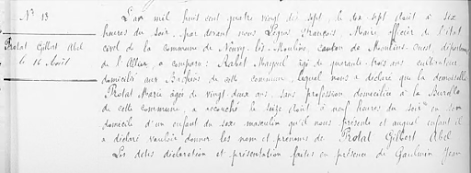 N° 13
Protat Gilbert Abel
le 16 Août
L'an mil huit cent quatre vingt dix sept, le dix sept Août à six
heures du soir, par devant nous Legros François, Maire officier de l'état
civil de la commune de Neuvy-les-Moulins, canton de Moulins-Ouest, département
de l'Allier, a comparu: Rabet Margt, âgé de quarante-trois ans cultivateur
domicilié aux de cette commune, lequel nous a déclaré que la demoiselle
Protat Marie âgée de vingt deux ans, sans profession domiciliée à la
de cette commune, a accouché le seize Août à neuf heures du soir en son
domicile d'un enfant du sexe masculin qu'il nous présente et auquel enfant il
a déclaré vouloir donner les nom et prénoms de Protat Gilbert Abel
Les dites déclaration et présentation faites en présence de Gaulmin Jean